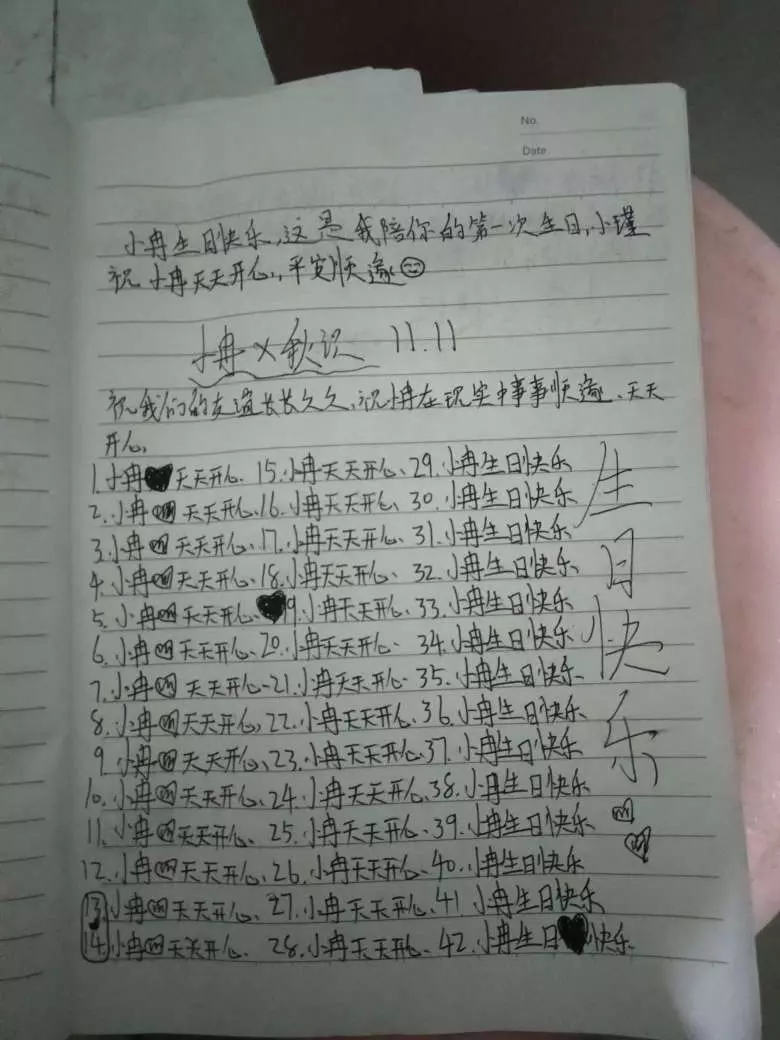 No.
Date
小冉生日快乐,这是我陪你的第一次生日,小瑾
祝小冉天天开心,平安顺遂
小冉×秋识 11.11
祝我们的友谊长长久久,祝小冉在现实中事事顺遂、天天
开心,
1.小冉天天开心、15.小冉天天开心、29.小冉生日快乐
2.小冉天天开心,16.小冉天天开心,30.小冉生日快乐
3.小冉天天开心、17.小冉天天开心、31.小冉生日快乐
4.小冉天天开心、18.小冉天天开心、32.小冉生日快乐
5.小冉天天开心、19.小冉天天开心、33.小冉生日快乐
6.小冉天天开心、20.小冉天天开心、34.小冉生日快乐
7.小冉天天开心、21.小冉天乐开心、35.小冉生日快乐
8.小冉天天开心,22.小冉天天开心、36.小冉生日快乐
9.小冉天天开心、23.小冉天天开心、37.小冉生日快乐
10.小冉天天开心、24.小冉天天开心、38.小冉生日快乐
11.小冉天天开心、25.小冉天天开心、39.小冉生日快乐
12.小冉天天开心、26.小冉天天开心、40.小冉生日快乐
13.小冉天天开心、27.小冉天天开心、41.小冉生日快乐
14.小冉天天开心、28.小冉天天开心、42.小冉生日快乐
生日快乐